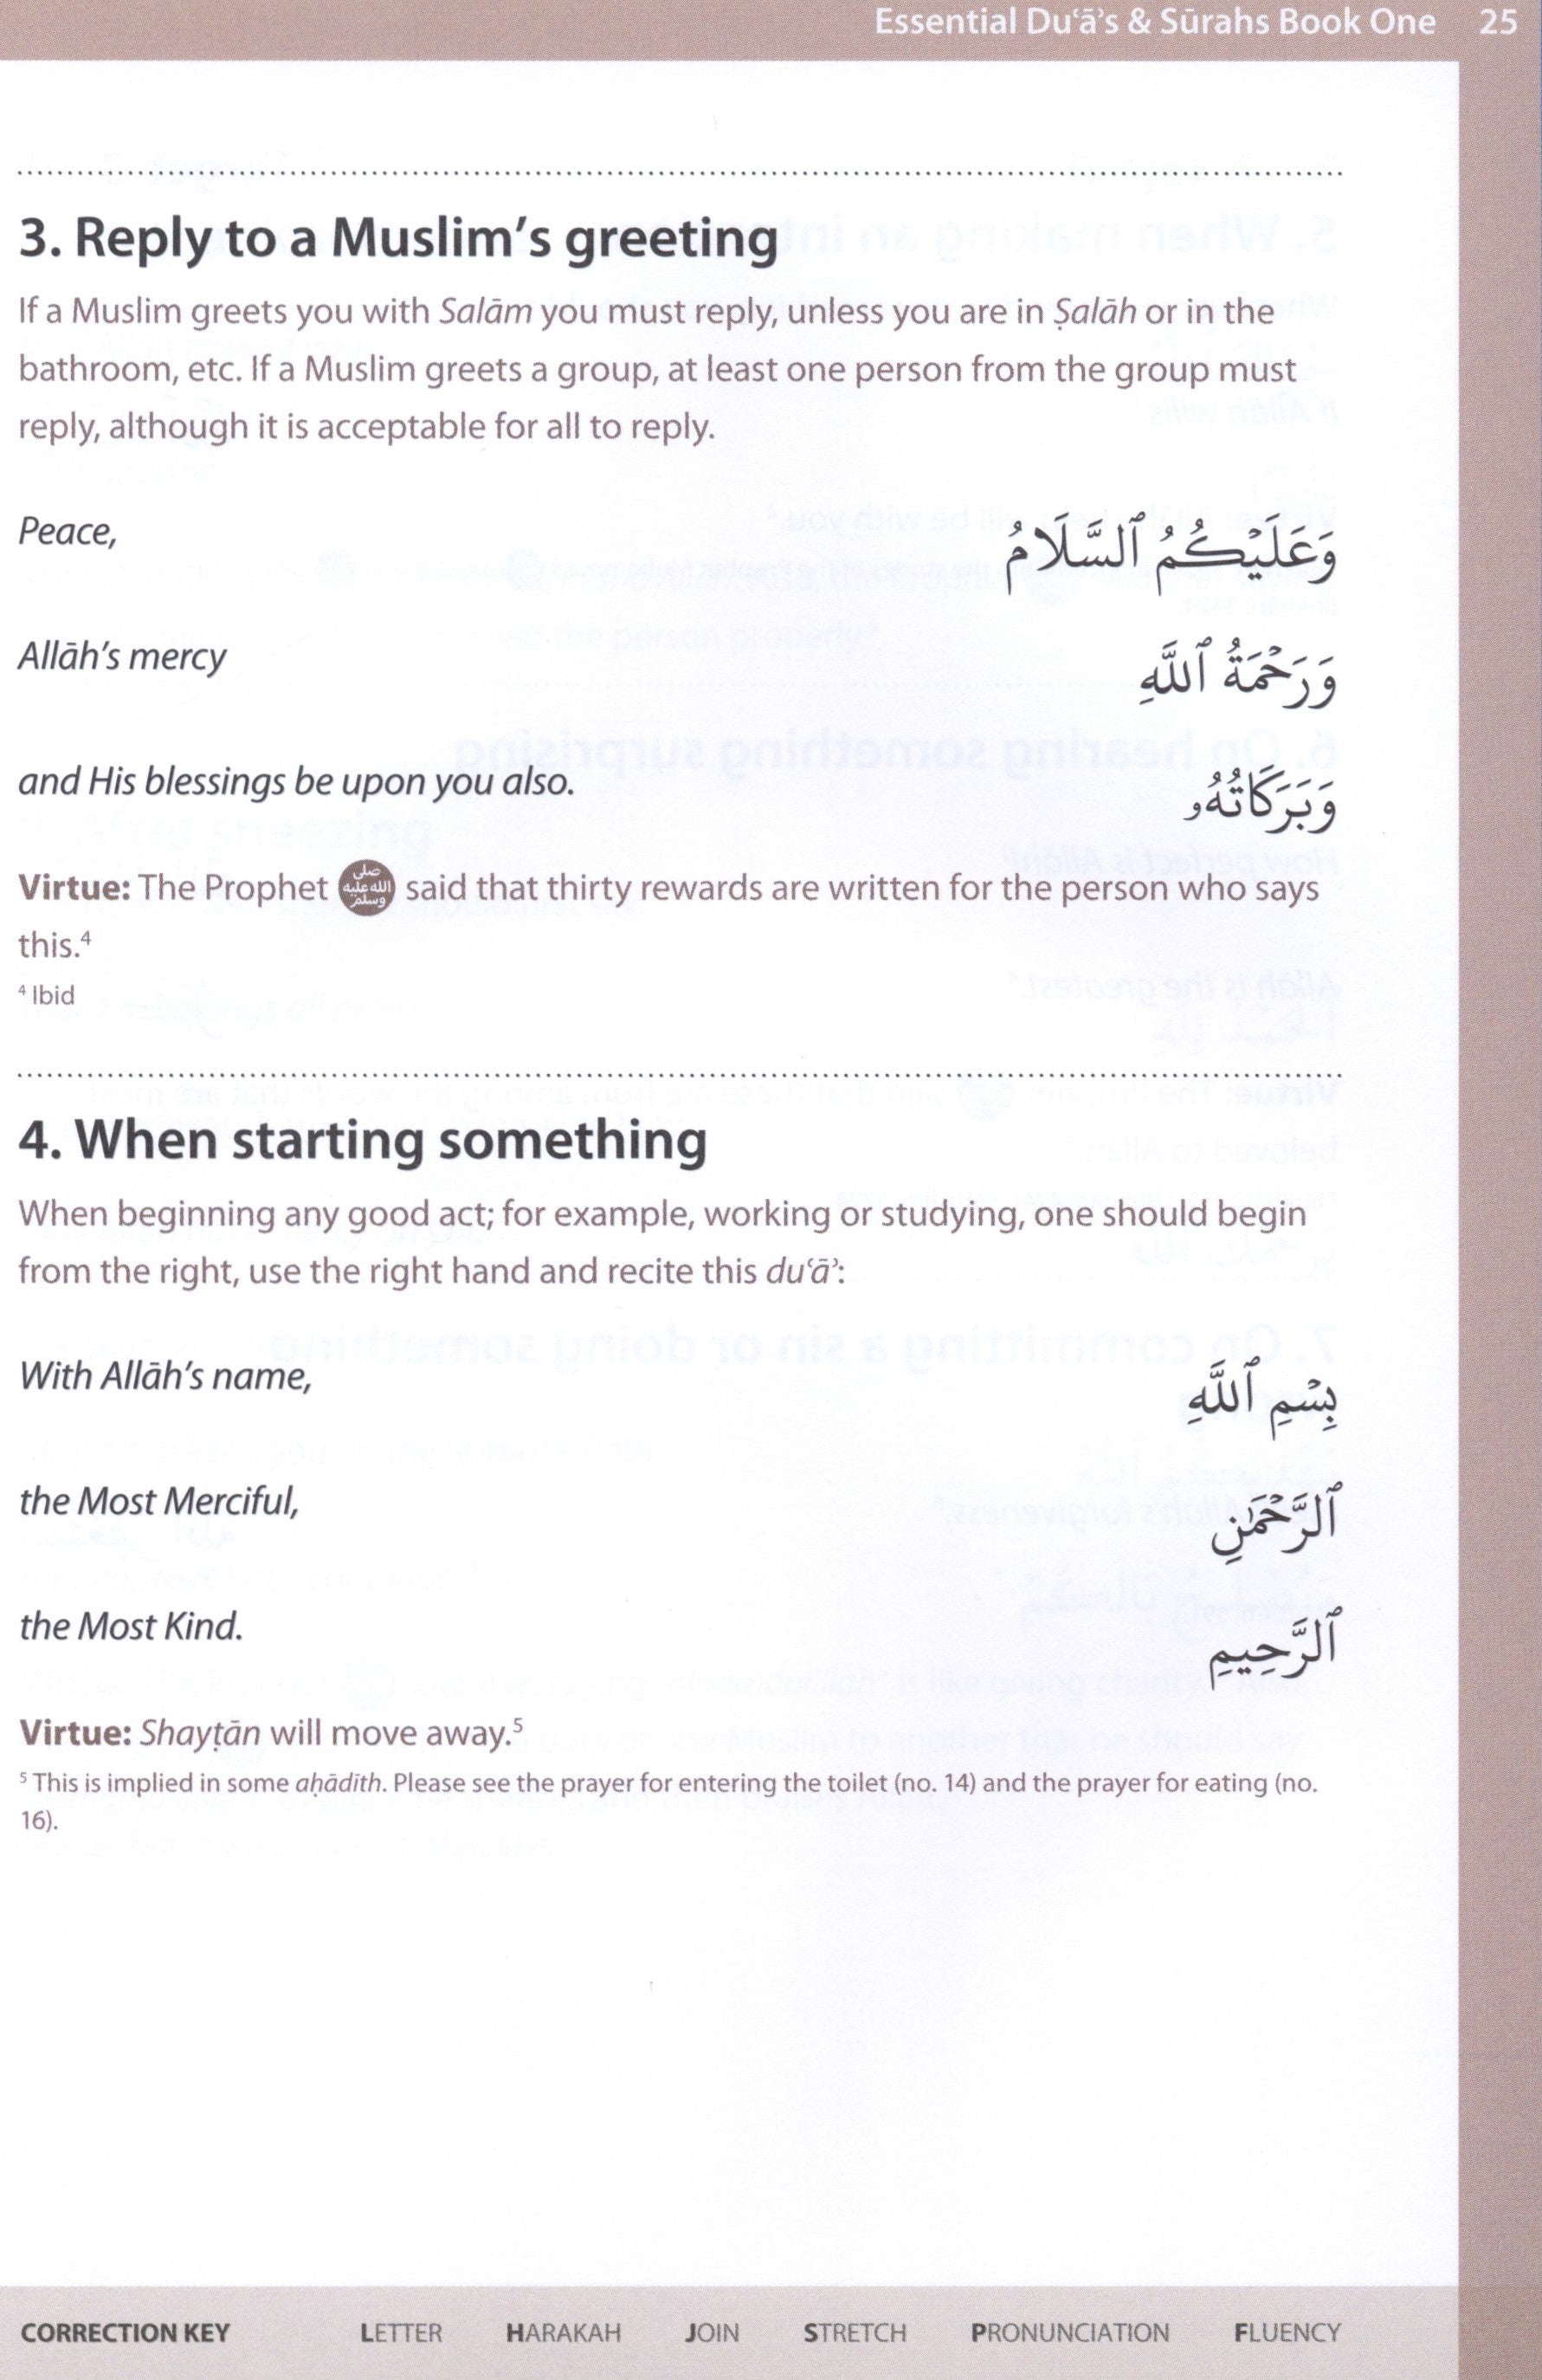 Essential Du‘ā’s & Sūrahs Book One 25
3. Reply to a Muslim’s greeting
If a Muslim greets you with Salām you must reply, unless you are in Ṣalāh or in the
bathroom, etc. If a Muslim greets a group, at least one person from the group must
reply, although it is acceptable for all to reply.
Peace, وَعَلَيْكُمُ ٱلسَّلَامُ
Allāh’s mercy وَرَحْمَةُ ٱللَّهِ
and His blessings be upon you also. وَبَرَكَاتُهُۥ
Virtue: The Prophet ﷺ said that thirty rewards are written for the person who says
this.⁴
⁴ Ibid
4. When starting something
When beginning any good act; for example, working or studying, one should begin
from the right, use the right hand and recite this du‘ā’:
With Allāh’s name, بِسْمِ ٱللَّهِ
the Most Merciful, ٱلرَّحْمَٰنِ
the Most Kind. ٱلرَّحِيمِ
Virtue: Shayṭān will move away.⁵
⁵ This is implied in some aḥādīth. Please see the prayer for entering the toilet (no. 14) and the prayer for eating (no.
16).
CORRECTION KEY LETTER HARAKAH JOIN STRETCH PRONUNCIATION FLUENCY